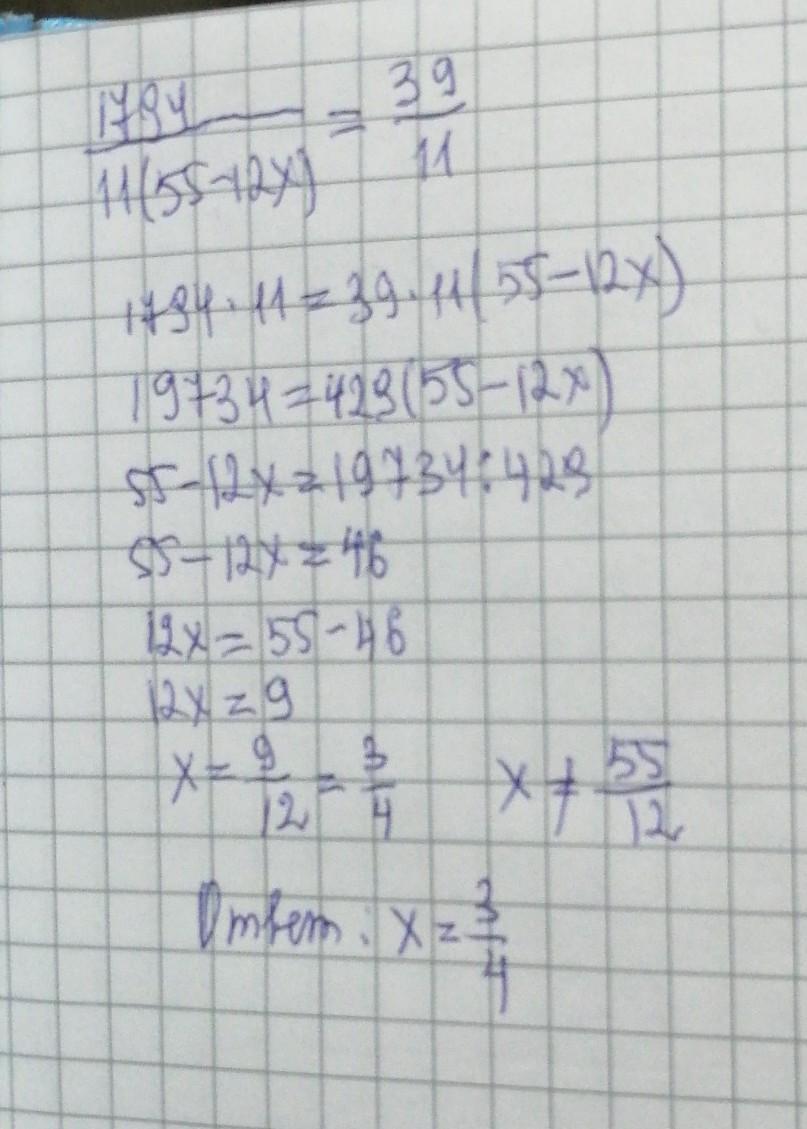 1794/11(55-12x) = 39/11
1794·11=39·11(55-12x)
19734=429(55-12x)
55-12x=19734:429
55-12x=46
12x=55-46
12x=9
x=9/12=3/4 x≠55/12
Ответ: x=3/4